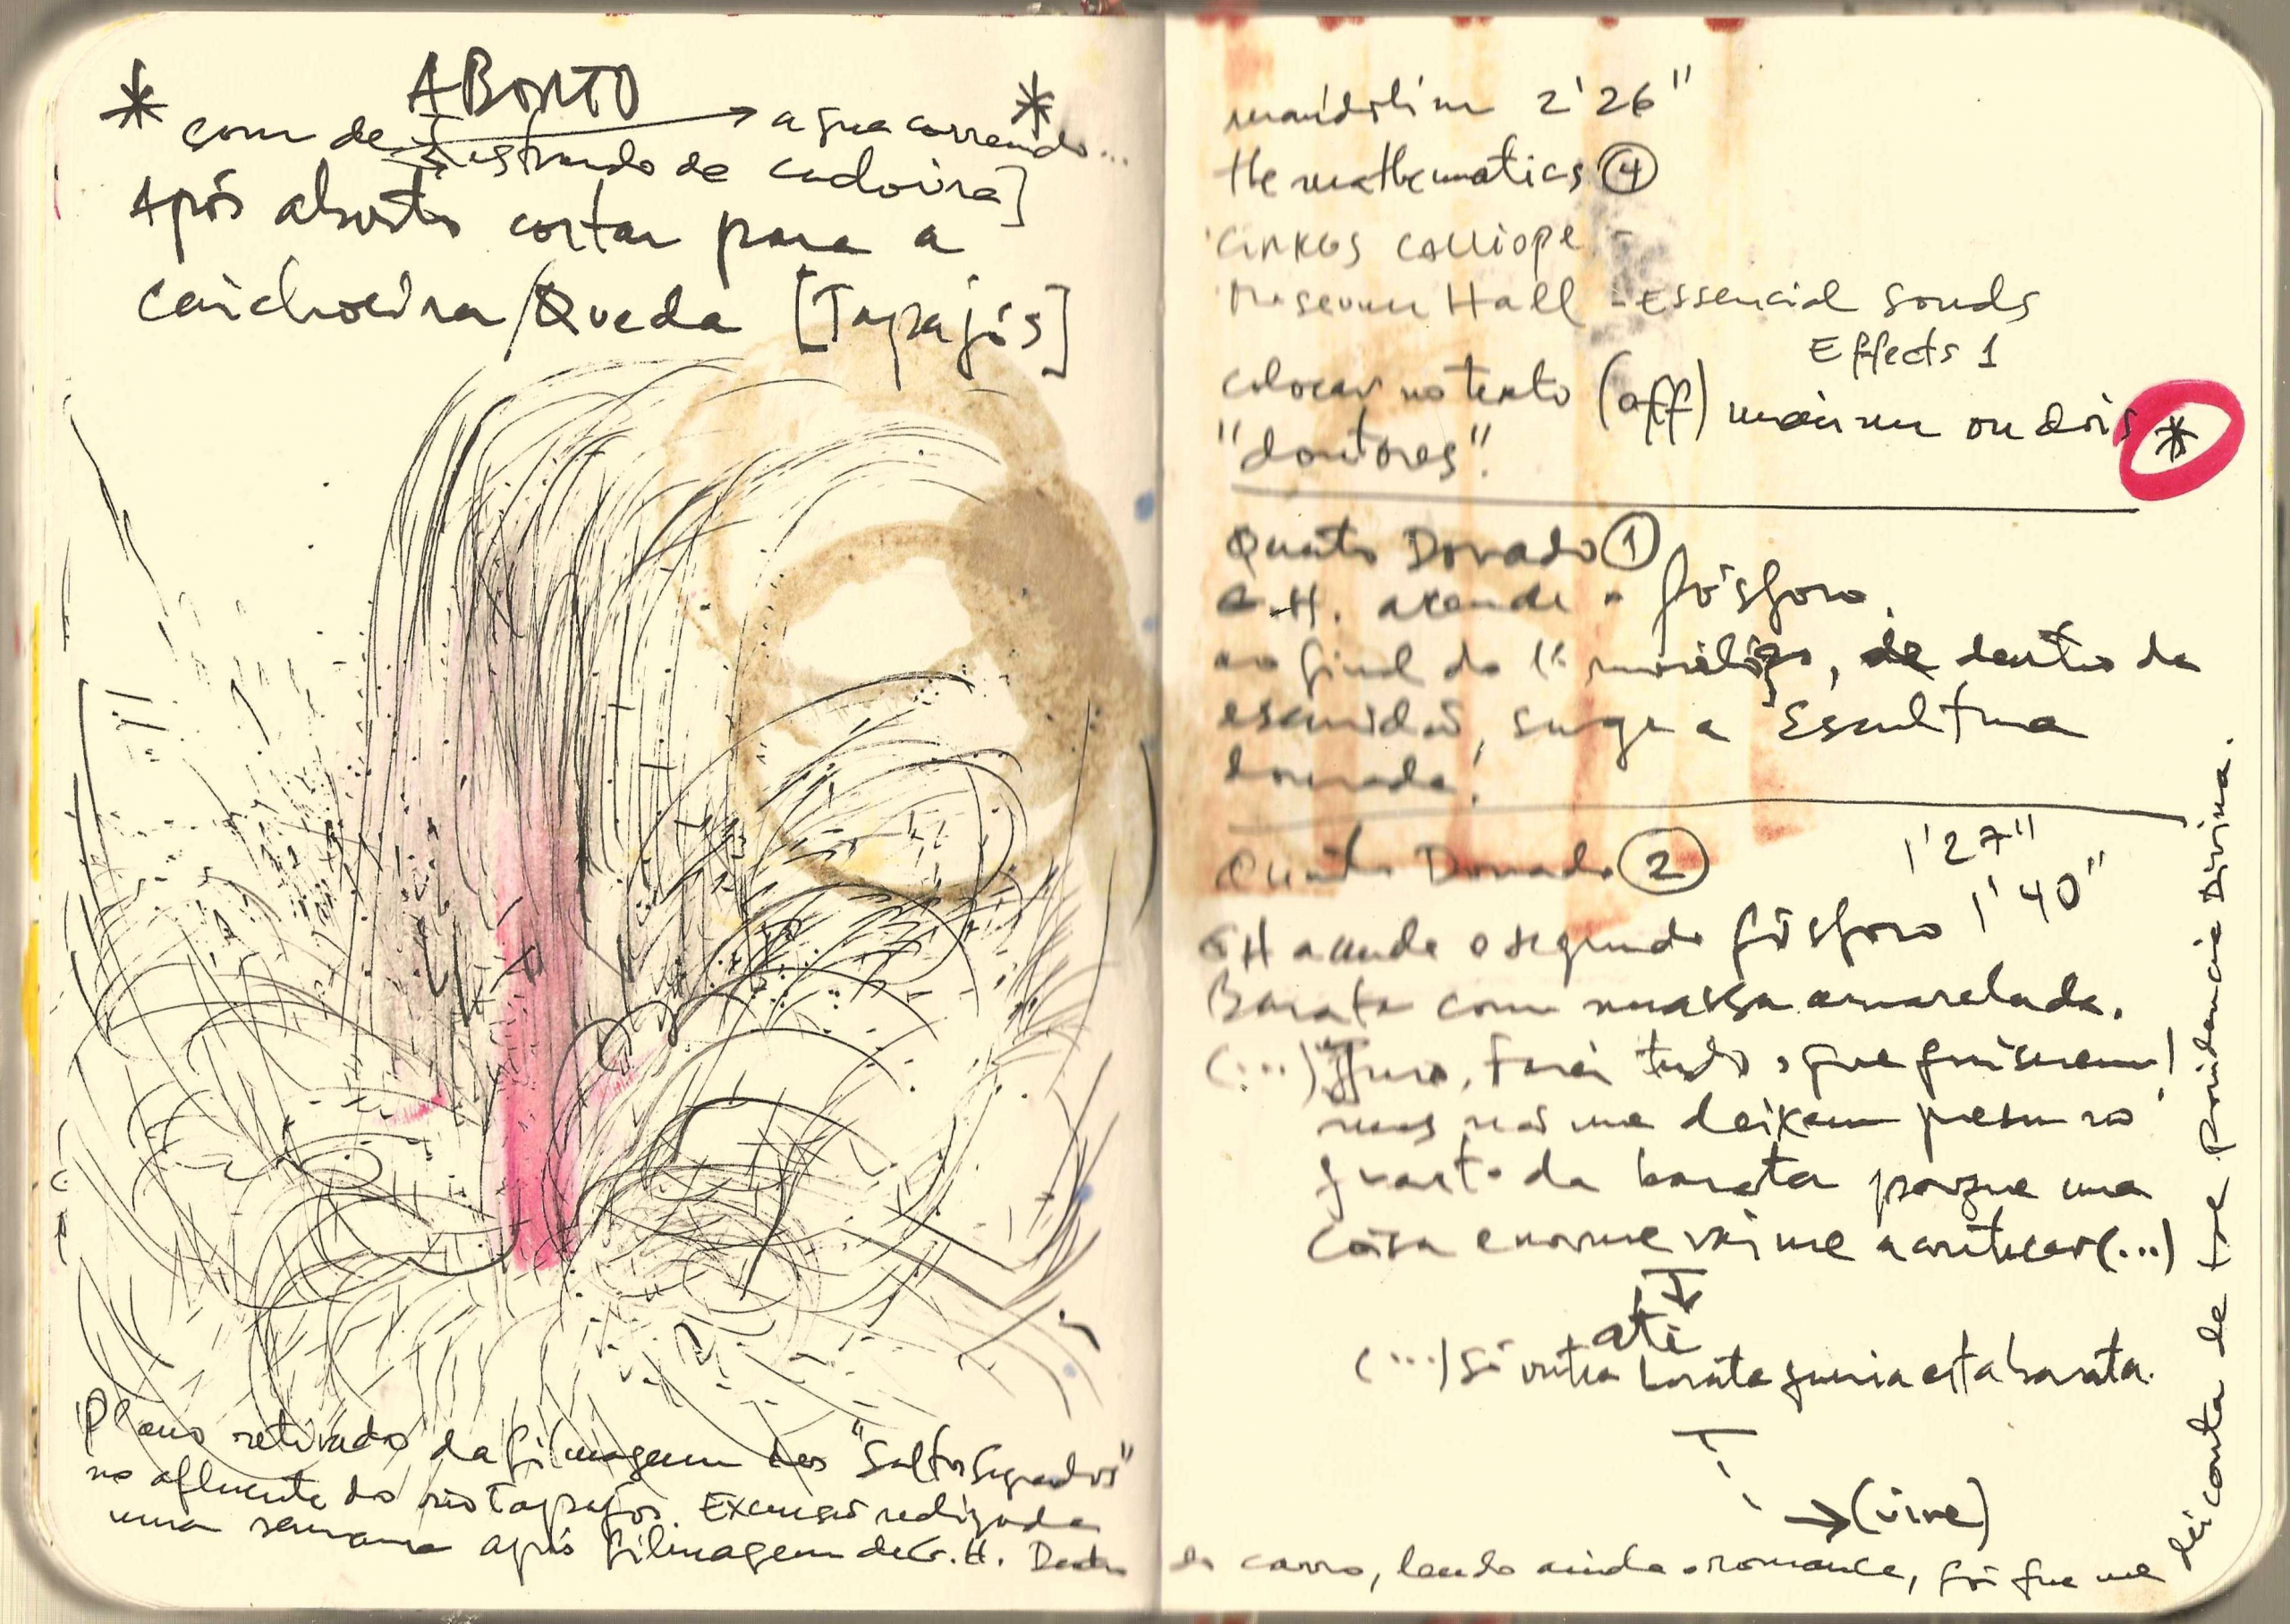 * ABORTO *
som de → agua correndo...
estrondo de cadeira]
Após aborto cortar para a
cachoeira/Queda [Tapajós]
Plano retirado da filmagem dos "Saltos Sagrados"
no afluente do rio Tapajós. Excursão realizada
uma semana após filmagem de G.H. Dentro
mandolim 2'26"
the mathematics ④
Cirkus Calliope -
Museum Hall - Essencial Sounds
Effects 1
colocar no texto (off) ou dois *
"doutores".
Quarto Dourado ①
G.H. acende o fósforo.
ao final do monólogo, de dentro da
escuridão, surge a Escultura
dourada!
Quarto Dourado ② 1'27"
GH acende o segundo fósforo 1'40"
Barata com massa amarelada.
(...) Juro, Farei tudo o que quiserem!
mas não me deixem presa no
quarto da barata porque uma
coisa enorme vai me acontecer (...)
↓
até
(...) Só outra barata queria esta barata.
→ (vire)
do carro, lendo ainda o romance, foi que me
dei conta de tre Providencia Divina.